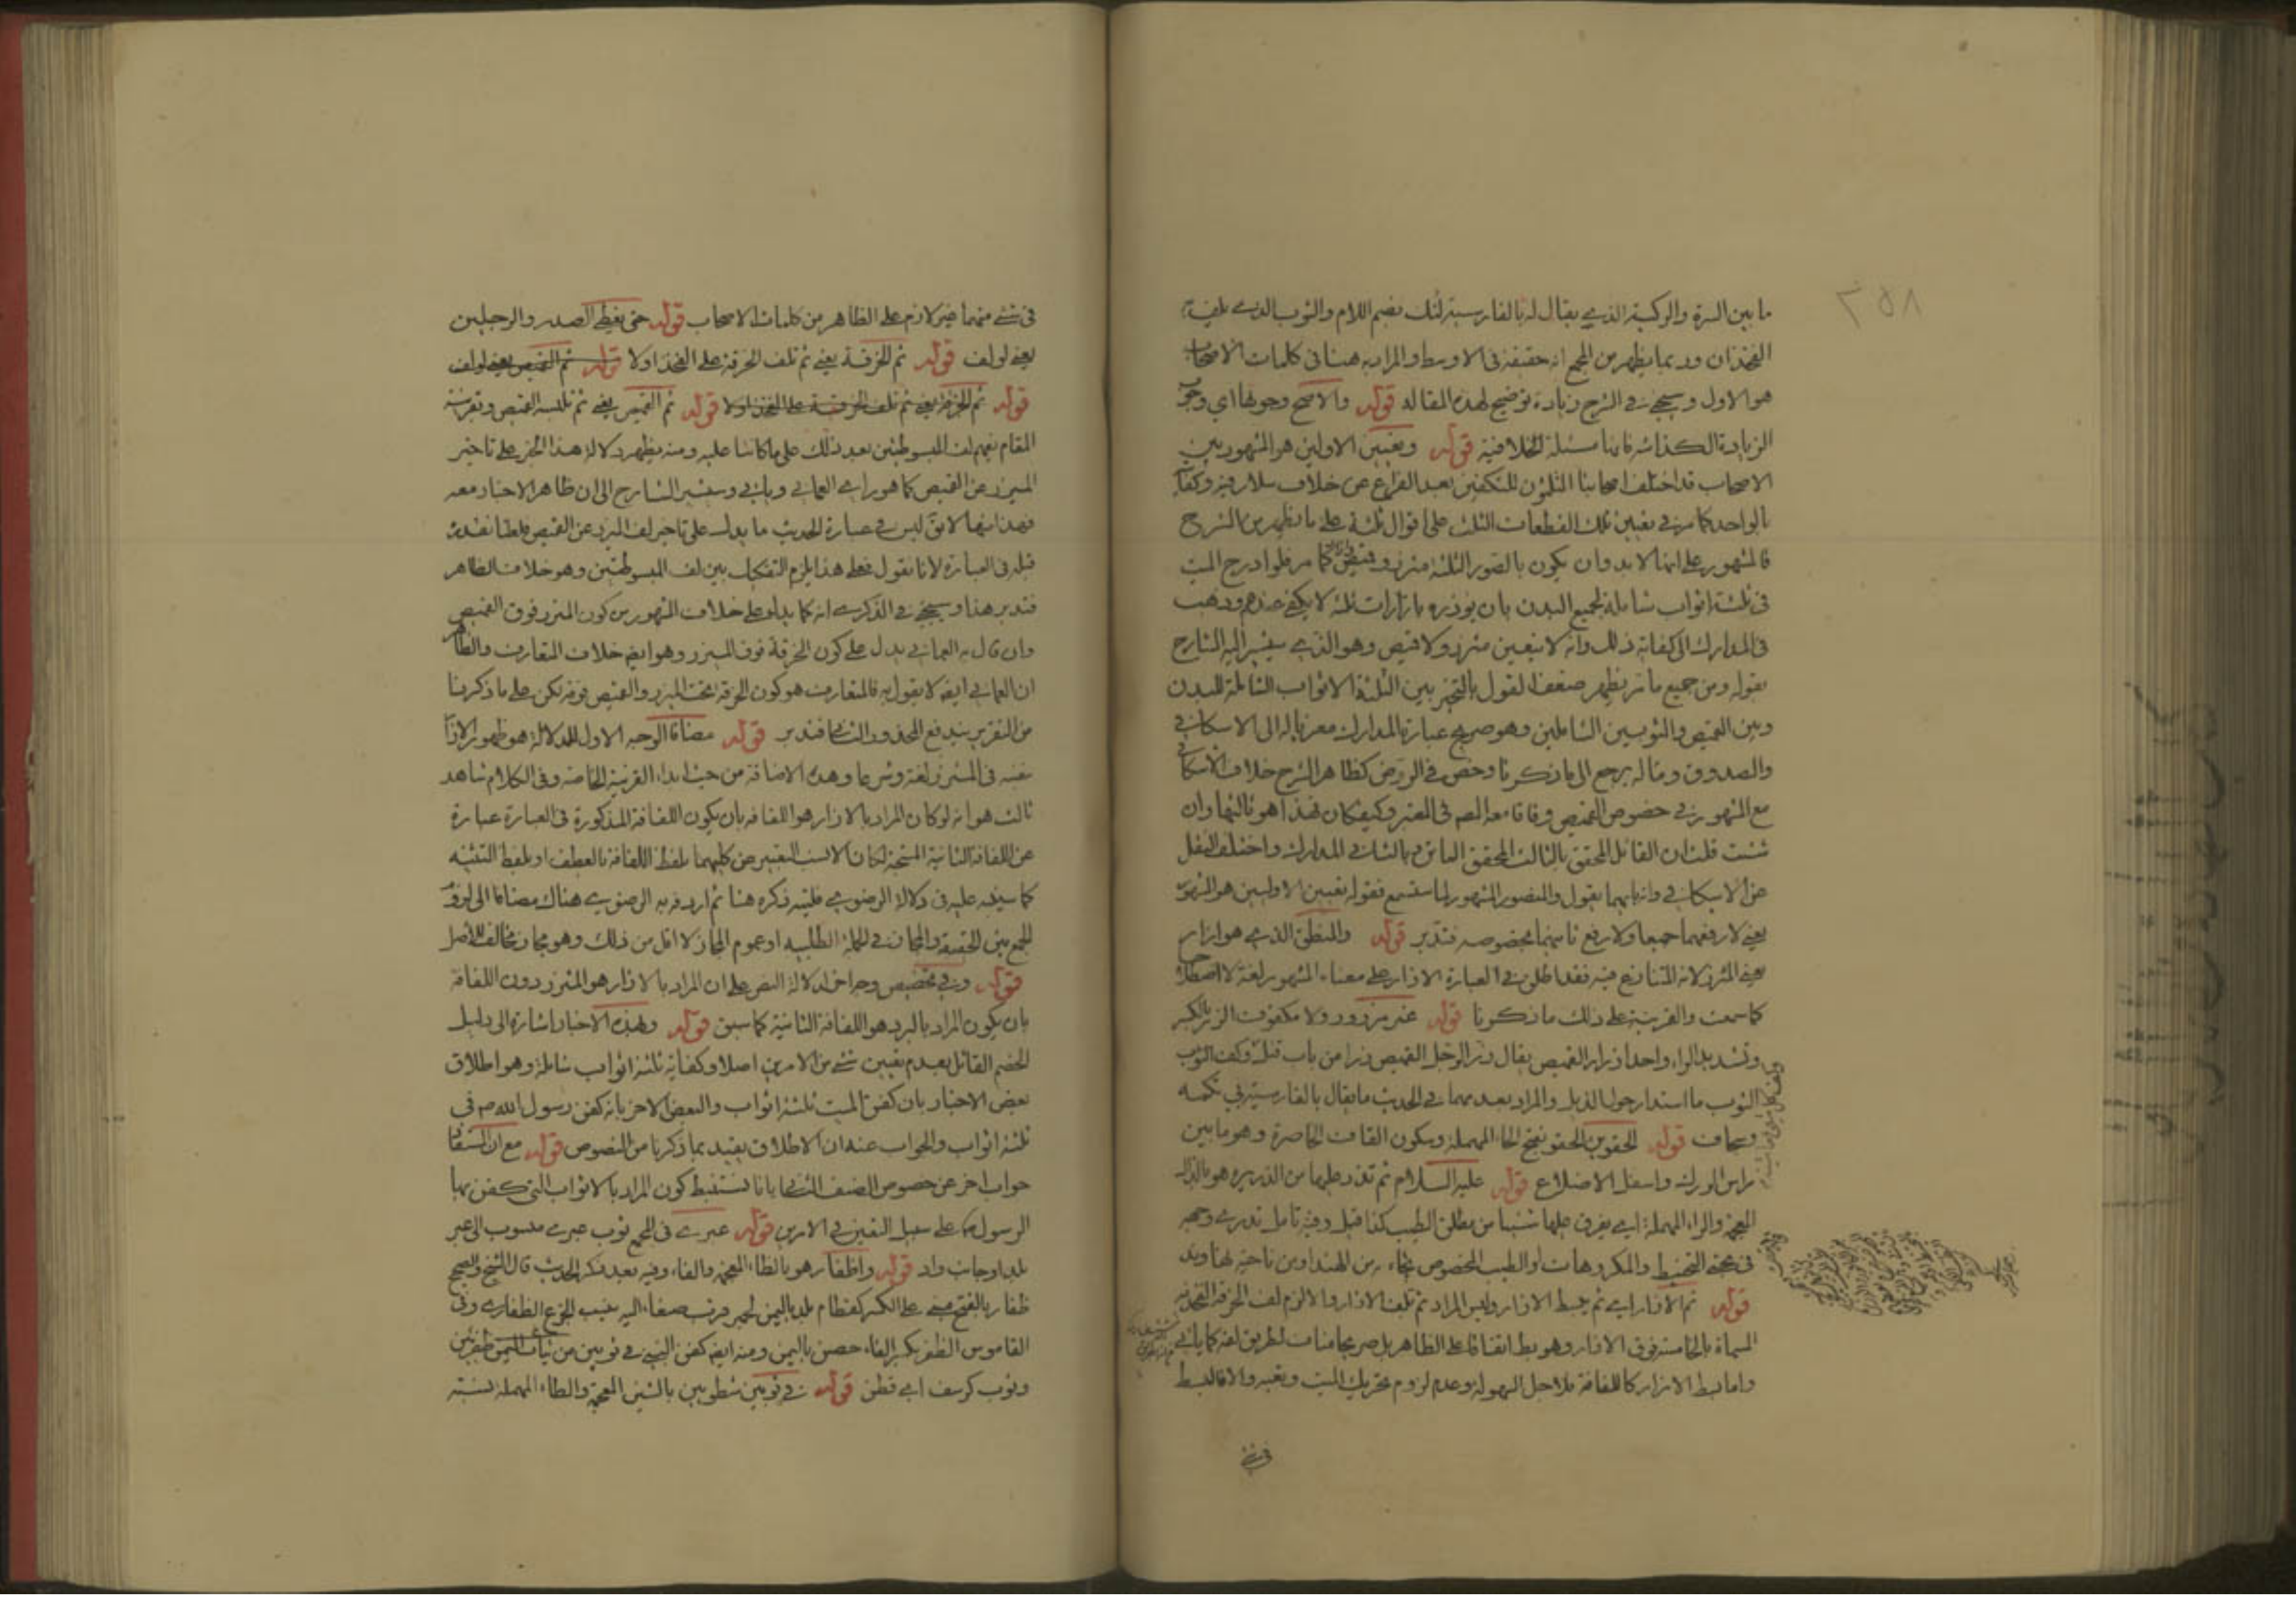 ما بين السرة والركبة الذي يقال له بالفارسية لنك بضم اللام والثوب الذي يلف به
الفخذان وربما يظهر من المجمع انه حقيقة فى الاوسط والمراد به هنا فى كلمات الاصحاب
هو الاول وسيجئ فى الشرح زيادة توضيح لهذه المقالة قوله والاصح وجوبها اي وجوب
الزيادة الكذائية فانها مسئلة خلافية قوله وتعيين الاولين هو المشهور بين
الاصحاب قد اختلف اصحابنا القائلون للتكفين بعد الفراغ عن خلاف سلار فيه وكفاية
بالواحد كما مر فى تعيين تلك القطعات الثلث على اقوال ثلثة على ما يظهر من الشرح
فالمشهور على انها لابد وان يكون بالصور الثلثة مئزر وقميص وازار كما مر فلو ادرج الميت
فى ثلثة اثواب شاملة لجميع البدن بان يوزره بازارات ثلثة لا يكفى عندهم وذهب
فى المدارك الى كفاية ذلك وانه لا يتعين مئزر ولا قميص وهو الذي يشير اليه الشارح
بقوله ومن جميع ما مر يظهر ضعف القول بالتخيير بين الثلثة الاثواب الشاملة للبدن
وبين القميص والثوبين الشاملين وهو صريح عبارة المدارك معزيا له الى الاسكافي
والصدوق وماله يرجع الى ما ذكرنا وخص فى الروض كظاهر الشرح خلاف الاسكافي
مع المشهور فى خصوص القميص وفاقا معه المص فى المعتبر وكيفكان فهذا هو ثالثها وان
شئت قلت ان القائل المحقق بالثالث المحقق الثانى وبالثانى المدارك واختلف النقل
عن الاسكافي وانه بايهما يقول والمنصور المشهور لما ستسمع فقوله تعيين الاولين هو المشهور
يعنى لا رفعهما جميعا ولا رفع ثانيهما بخصوصه فتدبر قوله والمنطق الذي هو ازار
يعنى المئزر لانه المتنازع فيه فقد اطلق فى العبارة الازار على معناه المشهور لغة لا اصطلاحا
كما سمعت والقرينة على ذلك ما ذكرنا قوله غير مزرور ولا مكفوف الزر بالكسر
وتشديد الراء واحد ازرار القميص يقال زر الرجل القميص زرا من باب قتل وكف الثوب
الثوب ما استدار حول الذيل والمراد بعدمهما فى الحديث ما يقال بالفارسية بى تكمه
وسجاف قوله الحقوين الحقو بفتح الحاء المهملة وسكون القاف الخاصرة وهو ما بين
راس الورك واسفل الاضلاع قوله عليه السلام ثم تذر عليها من الذريره هو بالذال
المعجمة والراء المهملة اي يفرق عليها شيئا من مطلق الطيب كذا قيل وفيه تامل تدري وجهه
فى مبحث التحنيط والمكروهات او الطيب المخصوص يجاء به من الهند او من ناحية نهاوند
قوله ثم الازار اي ثم يبسط الازار وليس المراد ثم تلف الازار والا لزم لف الخرقة الفخذية
المسماة بالخامسة فوق الازار وهو بط اتفاقا على الظاهر بل صريحا مناف لطريق لفه كما ياتى
واما بسط الازار كاللفافة فلاجل السهولة وعدم لزوم تحريك الميت وتعبه والا فالبسط
فى شئ
فى شئ منهما غير لازم على الظاهر من كلمات الاصحاب قوله حتى يغطى الصدر والرجلين
يعنى لو لف قوله ثم الخرقة يعنى ثم تلف الخرقة على الفخذ اولا قوله ثم القميص يعنى لو لف
قوله ثم الخرقة يعنى ثم تلف الخرقة على الفخذ اولا قوله ثم القميص يعنى ثم تلبسه القميص وبقرينة
المقام يفهم لف المبسوطتين بعد ذلك على ما كانتا عليه ومنه يظهر دلالة هذا الخبر على تاخير
الميزر عن القميص كما هو راى العمانى وياتى وسيشير الشارح الى ان ظاهر الاخبار معه
فهذا منها لا يق ليس فى عبارة الحديث ما يدل على تاخير لف البرد عن القميص فلعلها تقدمت
قبله فى العبارة لانا نقول فعلى هذا يلزم التفكيك بين لف المبسوطتين وهو خلاف الظاهر
فتدبر هذا وسيجئ فى الذكرى انه كما يدل على خلاف المشهور من كون المئزر فوق القميص
وان قال به العمانى يدل على كون الخرقة فوق الميزر وهو ايضا خلاف المتعارف والظاهر
ان العمانى ايضا لا يقول به فالمتعارف هو كون الخرقة تحت الميزر والقميص فوقه لكن على ما ذكرنا
من التقرير يندفع المحذور الثانى فتدبر قوله مضافا الوجه الاول للدلالة هو ظهور الازار
بنفسه فى المئزر لغة وشرعا وهذه الاضافة من حيث ابداء القرينة الخاصة وفى الكلام شاهد
ثالث هو انه لو كان المراد بالازار هو اللفافة بان يكون اللفافة المذكورة فى العبارة عبارة
عن اللفافة الثانية المستحبة لكان الانسب التعبير عن كليهما بلفظ اللفافة بالعطف او بلفظ التثنية
كما سينبه عليه فى دلالة الرضوي فليته ذكره هنا ثم اردفه به الرضوي هناك مضافا الى لزوم
الجمع بين الحقيقة والمجاز فى الجملة الطلبية او عموم المجاز لا اقل من ذلك وهو مجاز مخالف للاصل
قوله وفى تخصيص وجه اخر لدلالة النص على ان المراد بالازار هو المئزر دون اللفافة
بان يكون المراد بالبرد هو اللفافة الثانية كما سبق قوله وبهذه الاخبار اشارة الى دليل
الخصم القائل بعدم تعيين شئ من الامرين اصلا وكفاية ثلثة اثواب شاملة وهو اطلاق
بعض الاخبار بان كفن الميت ثلثة اثواب والبعض الاخر بانه كفن رسول الله ص فى
ثلثة اثواب والجواب عنه ان الاطلاق يقيد بما ذكرنا من النصوص قوله مع ان المستفاد
جواب اخر عن خصوص الصنف الثانى بانا نستنبط كون المراد بالاثواب التى كفن بها
الرسول ص على سبيل التعيين فى الامرين قوله عبرى فى المجمع ثوب عبرى منسوب الى عبر
بلد او جانب واد قوله واظفار هو بالظاء المعجمة والفاء وفيه بعد ذكر الحديث قال الشيخ والصحيح
ظفار بالفتح مبنى على الكسر كقطام بلد باليمن لحمير قرب صنعاء اليه ينسب الجزع الظفارى وفى
القاموس الظفر بكسر الفاء حصن باليمن ومنه ايضا كفن النبى فى ثوبين من ثياب اليمن ظفرين
وثوب كرسف اى قطن قوله فى ثوبين شطويين بالشين المعجمة والطاء المهملة نسبة